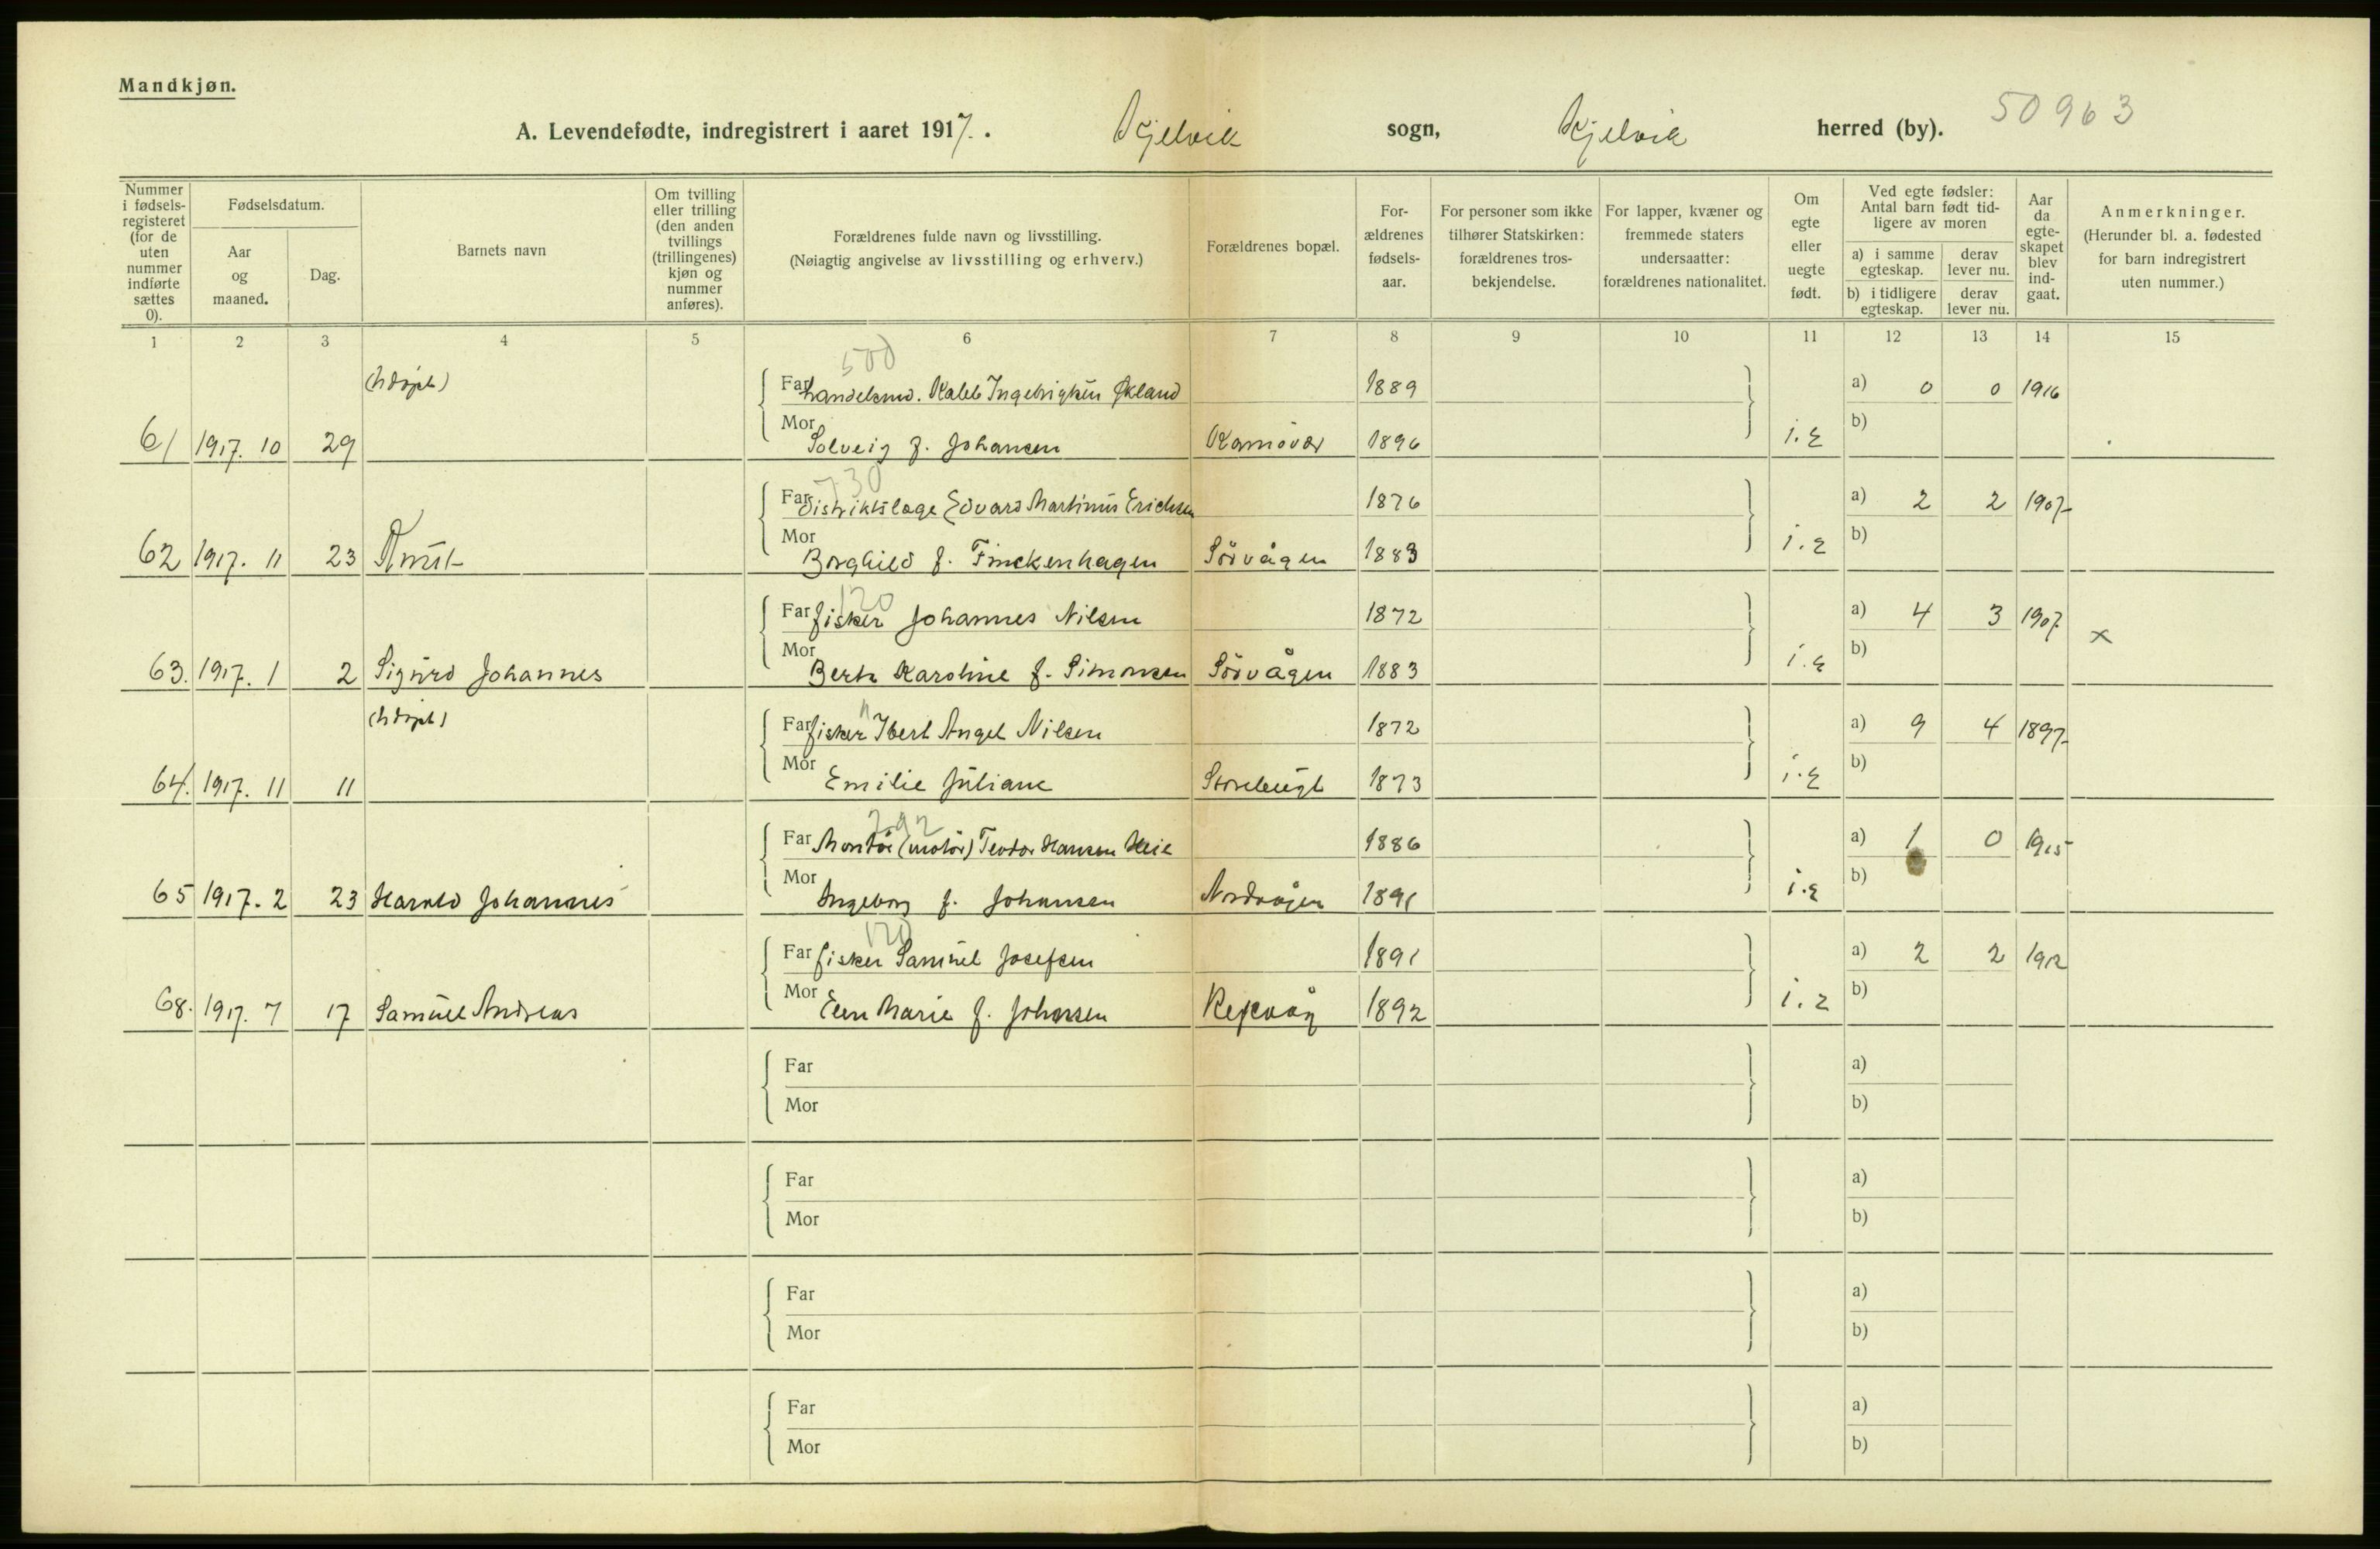 Mandkjøn.
A. Levendefødte, indregistrert i aaret 1917. Kjelvik sogn, Kjelvik herred (by). 50963
Nummer i fødsels-registeret (for de uten nummer indførte sættes 0).
Fødselsdatum.
Aar og maaned.
Dag.
Barnets navn
Om tvilling eller trilling (den anden tvillings (trillingenes) kjøn og nummer anføres).
Forældrenes fulde navn og livsstilling.
(Nøiagtig angivelse av livsstilling og erhverv.)
Forældrenes bopæl.
For-ældrenes fødsels-aar.
For personer som ikke tilhører Statskirken: forældrenes tros-bekjendelse.
For lapper, kvæner og fremmede staters undersaatter: forældrenes nationalitet.
Om egte eller uegte født.
Ved egte fødsler: Antal barn født tid-ligere av moren
a) i samme egteskap. derav lever nu.
b) i tidligere egteskap. derav lever nu.
Aar da egte-skapet blev ind-gaat.
Anmerkninger.
(Herunder bl. a. fødested for barn indregistrert uten nummer.)
1 2 3 4 5 6 7 8 9 10 11 12 13 14 15
500
(hdøpt) Far handelsmd. Kaleb Ingebrigtsen Økland 1889 a) 0 0 1916
61 1917. 10 29 Mor Solveig f. Johansen Kamøvær 1896 i. E b)
730
Far Distriktslæge Edvard Martinus Erichsen 1876 a) 2 2 1907
62 1917. 11 23 Knut Mor Borghild f. Finckenhagen Sörvågen 1883 i. E b)
120
Far fisker Johannes Nilsen 1872 a) 4 3 1907 x
63. 1917. 1 2 Sigurd Johannes Mor Berta Karoline f. Simonsen Sörvågen 1883 i. E b)
"
(hdøpt) Far fisker Ibert Angel Nilsen 1872 a) 9 4 1897
64. 1917. 11 11 Mor Emilie Juliane Storebugt 1873 i. E b)
292
Far Montør (motor) Teodor Hansen 1886 a) 1 0 1915
65 1917. 2 23 Harald Johannes Mor Ingeborg f. Johansen Nordvågen 1891 i. E b)
120
Far fisker Samuel Josefsen 1891 a) 2 2 1912
68. 1917. 7 17 Samuel Andreas Mor Elen Marie f. Johansen Repvåg 1892 i. E b)
Far a)
Mor b)
Far a)
Mor b)
Far a)
Mor b)
Far a)
Mor b)